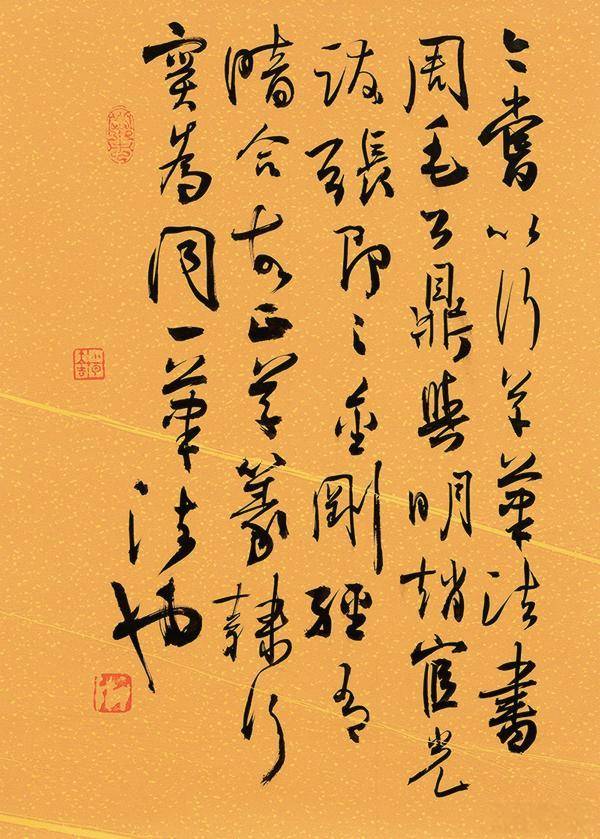 嘗以行草筆法書
周毛公鼎與明趙宦光
跋張即之金剛經有
暗合故正草篆隸行
實為同一筆法